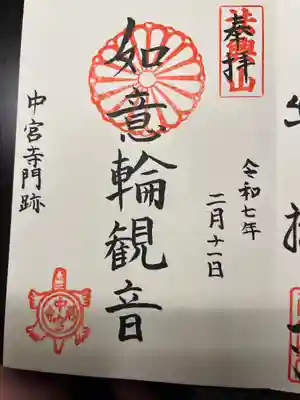 奉拝
令和七年
二月十一日
如意輪観音
中宮寺門跡